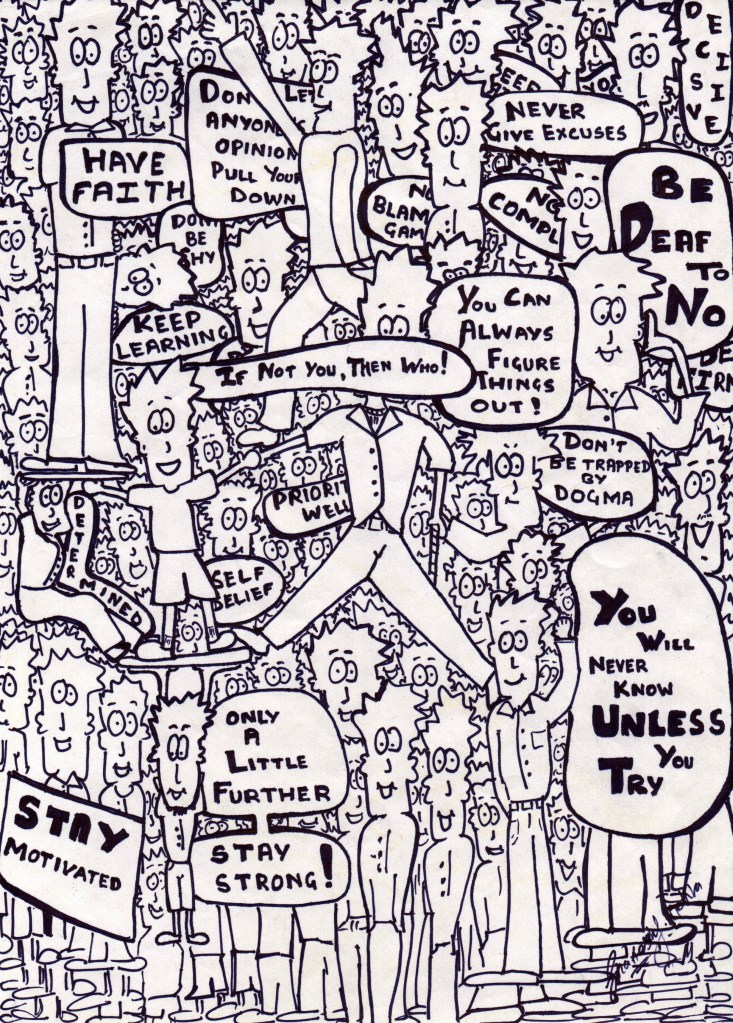 DECISIVE
DON LET
ANYONE'S
OPINION
PULL YOU
DOWN
KEEP
NO
NEVER
GIVE EXCUSES
HAVE
FAITH
BE
DEAF
TO
NO
NO
BLAM
GAM
NO
COMPL
DON'T
BE
SHY
KEEP
LEARNING
YOU CAN
ALWAYS
FIGURE
THINGS
OUT!
BE
FIRM
IF NOT YOU, THEN WHO!
DON'T
BE TRAPPED
BY
DOGMA
PRIORIT
WELL
DETERMINED
SELF
BELIEF
YOU
WILL
NEVER
KNOW
UNLESS
YOU
TRY
ONLY
A
LITTLE
FURTHER
STAY
MOTIVATED
STAY
STRONG!